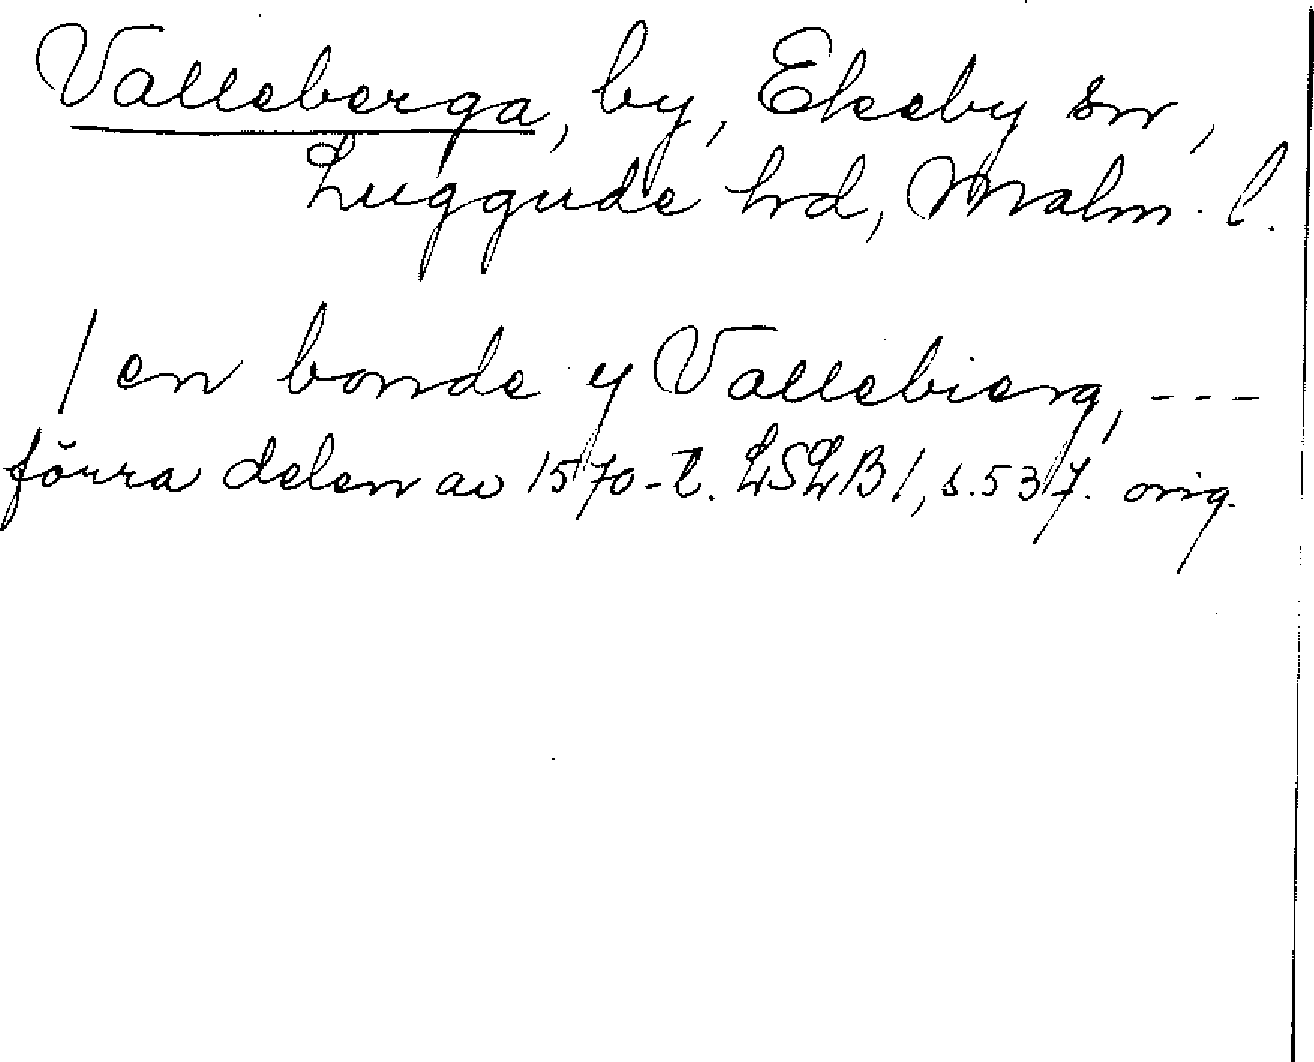 Valleberga, by, Ekeby sn,
Luggude hd, Malm. l.
1 en bonde y Vallebierg, ---
förra delen av 1570-t. LSLB 1, s. 537. orig.